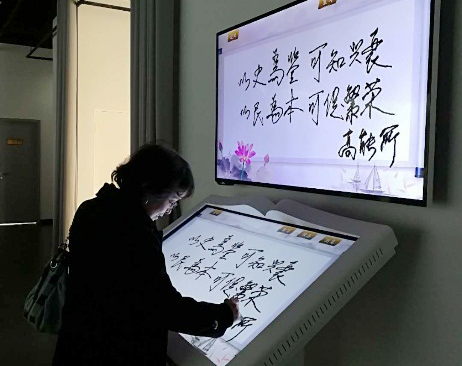 以史為鉴可知興衰
以民為本可促繁荣
高能所
以史為鉴可知興衰
以民為本可促繁荣
所